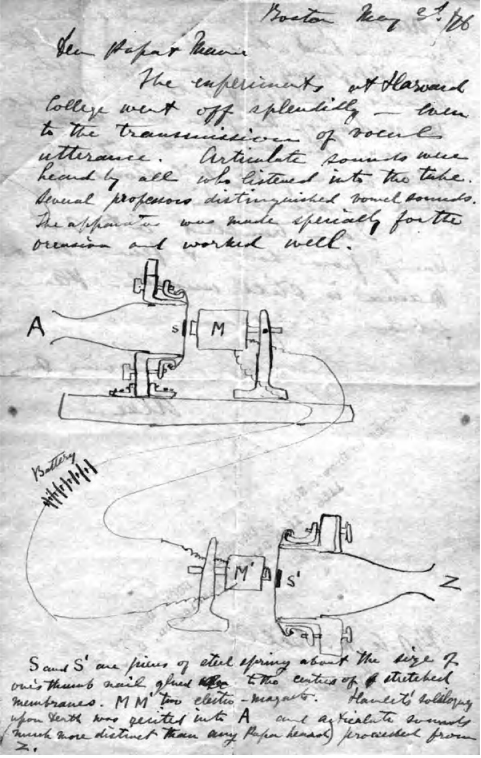 Boston May 2d. /76
Dear Papa & Mama
The experiments at Harvard
College went off splendidly — even
to the transmission of vocal
utterance. Articulate sounds were
heard by all who listened into the tube.
Several professors distinguished vowel sounds.
The apparatus was made specially for the
occasion and worked well.
A
S
M
Battery
M'
S'
Z
S and S' are pieces of steel spring about the size of
one's thumb nail glued to the centres of stretched
membranes. M M' two electro-magnets. Hamlet's soliloquy
upon Death was recited into A and articulate sounds
(much more distinct than any Papa heard) proceeded from
Z.